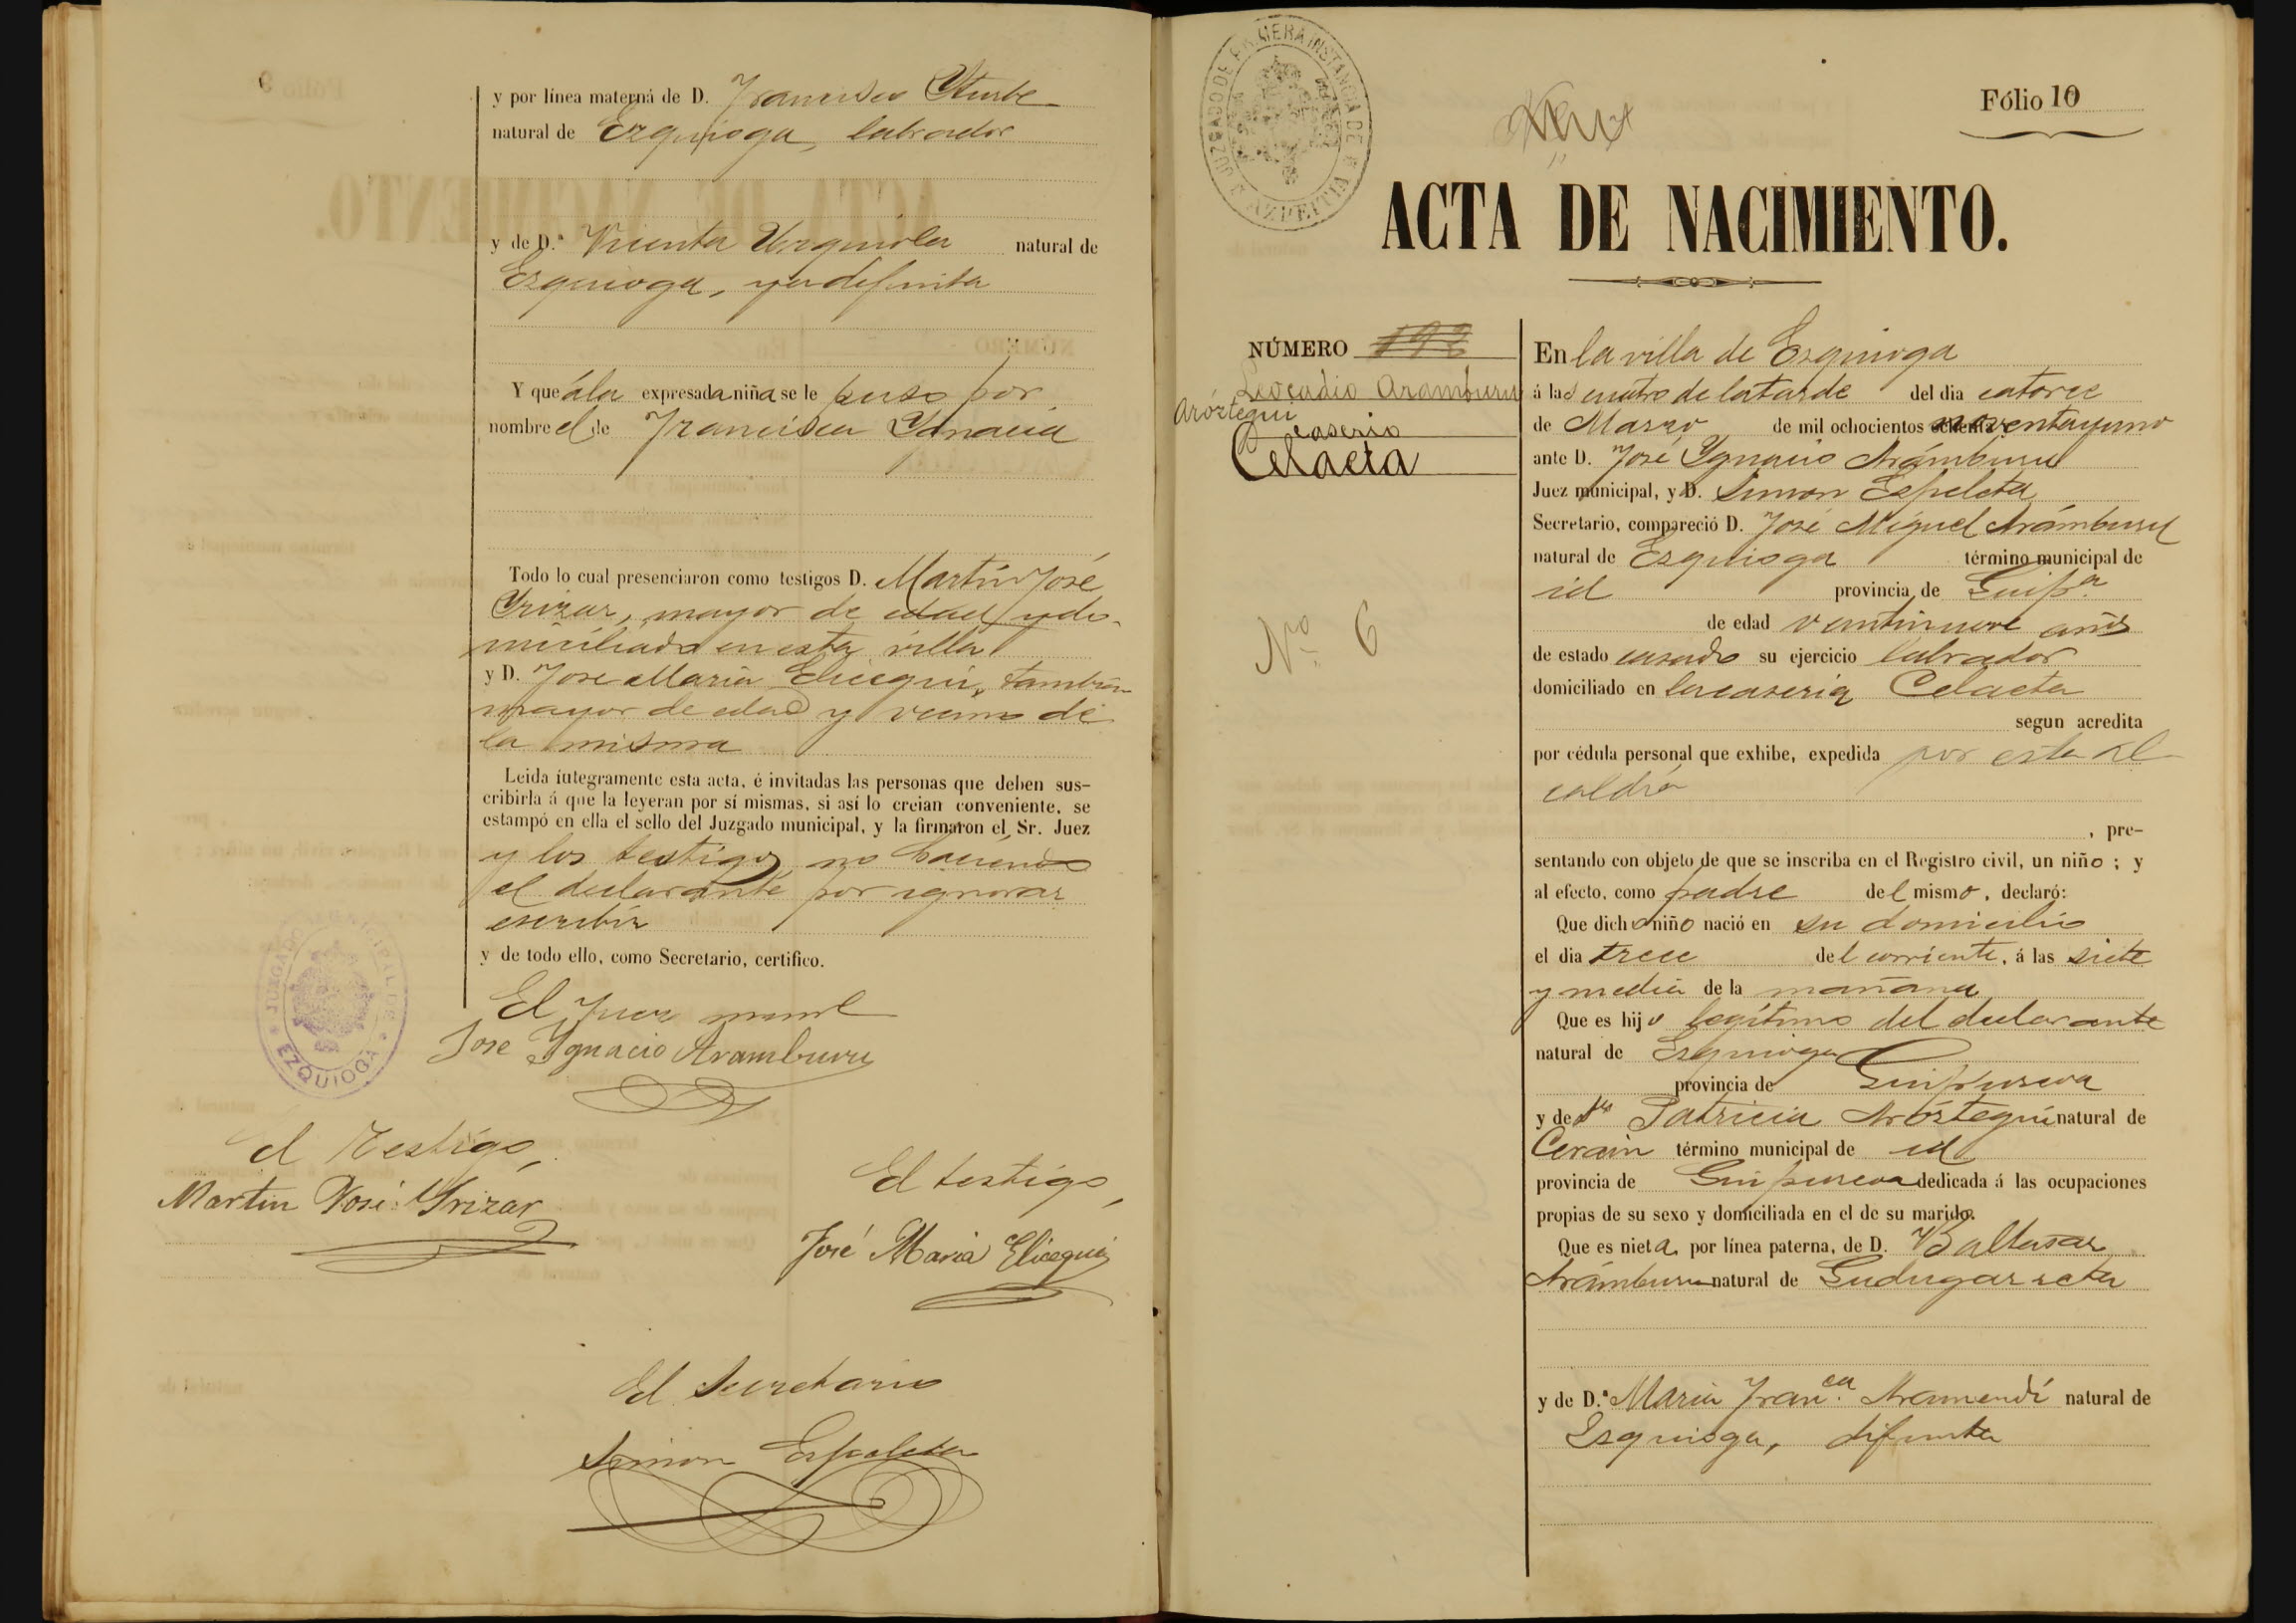 y por línea materna de D. Francisco Yturbe
natural de Ezquioga, labrador
y de D.ª Vicenta Urquiola natural de
Ezquioga, ya difunta
Y que á la expresada niña se le puso por
nombre el de Francisca Ygnacia
Todo lo cual presenciaron como testigos D. Martín José
Yrizar, mayor de edad y do-
miciliado en esta villa
y D. José María Elicegui, también
mayor de edad y vecino de
la misma
Leida íntegramente esta acta, é invitadas las personas que deben sus-
cribirla á que la leyeran por sí mismas, si así lo creian conveniente, se
estampó en ella el sello del Juzgado municipal, y la firmaron el Sr. Juez
y los testigos no haciendo
el declarante por ignorar
escribir
y de todo ello, como Secretario, certifico.
JUZGADO MUNICIPAL DE EZQUIOGA
El Juez munl
Jose Ygnacio Aramburu
el Testigo,
Martin José Yrizar
El testigo,
José Maria Elicegui
El Secretario
Simon Espeleta
JUZGADO DE PRIMERA INSTANCIA DE AZPEITIA
Fólio 10
ACTA DE NACIMIENTO.
NÚMERO 192
Leocadio Aramburu
Aróztegui
caserio
Celaeta
Nº 6
En la villa de Ezquioga
á las cuatro de la tarde del dia catorce
de Marzo de mil ochocientos ochenta noventa y uno
ante D. José Ygnacio Arámburu
Juez municipal, y D. Simon Espeleta
Secretario, compareció D. José Miguel Arámburu
natural de Ezquioga término municipal de
id provincia de Guip.ª
de edad veintinueve años
de estado casado su ejercicio labrador
domiciliado en la caseria Celaeta
segun acredita
por cédula personal que exhibe, expedida por esta Al
caldía
, pre-
sentando con objeto de que se inscriba en el Registro civil, un niño ; y
al efecto, como padre del mismo, declaró:
Que dicho niño nació en su domicilio
el dia trece del corriente, á las siete
y media de la mañana
Que es hijo legítimo del declarante
natural de Ezquioga
provincia de Guipuzcoa
y de Dª Patricia Aróztegui natural de
Cerain término municipal de id
provincia de Guipuzcoa dedicada á las ocupaciones
propias de su sexo y domiciliada en el de su marido.
Que es nieta, por línea paterna, de D. Baltasar
Arámburu natural de Gudugarreta
y de D.ª Maria Fran.ca Aramendí natural de
Ezquioga, difunta